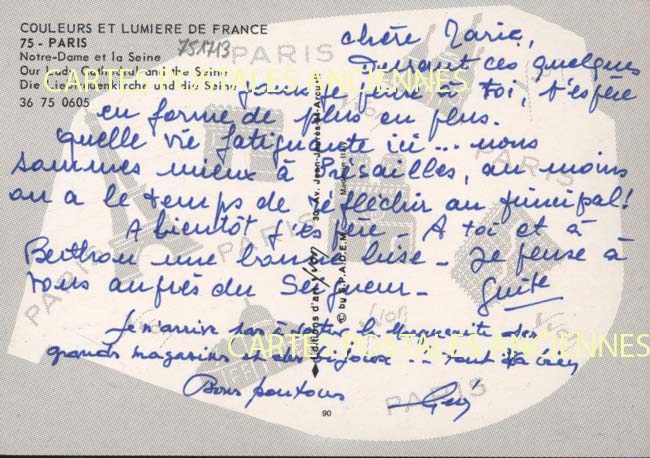 COULEURS ET LUMIERE DE FRANCE
75 - PARIS
751713
Notre-Dame et la Seine
Our Lady Cathedral and the Seine
Die Liebfrauenkirche und die Seine
36 75 0605
PARIS
CARTES POSTALES ANCIENNES
chère Marie,
Durant ces quelques
jours je pense à toi, t'espère
en forme de plus en plus.
Quelle vie fatiguante ici... nous
sommes mieux à Présailles, au moins
on a le temps de réfléchir au principal!
A bientôt j'espère - A toi et à
Berthou une bonne bise - Je pense à
vous auprès du Seigneur -
Guite
Je n'arrive pas à le
grands magasins et des bijoux - tout va bien
CARTES POSTALES ANCIENNES
Bons pour tous
Éditions d'art Yvon
30, Av. Jean-Jaurès
Arcueil
© by S.P.A.D.E.M.
PARIS
PARIS
PARIS
PARIS
yvon
90